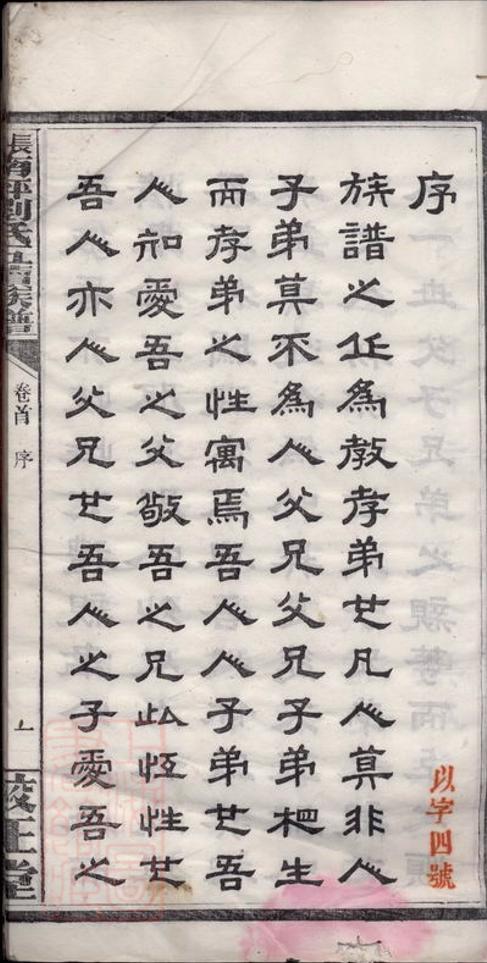 序
族譜之作為教孝弟也凡人莫非人
子弟莫不為人父兄父兄子弟相生
而孝弟之性寓焉吾人人子弟也吾
人知愛吾之父敬吾之兄此恆性也
吾人亦人父兄也吾人之子愛吾之
以字四號
南坪劉氏五修族譜
卷首 序